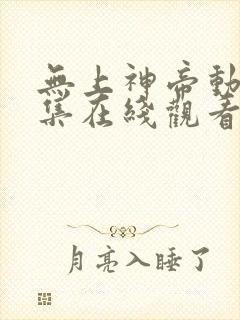 無上神帝動
集在綫觀看
月亮入睡了